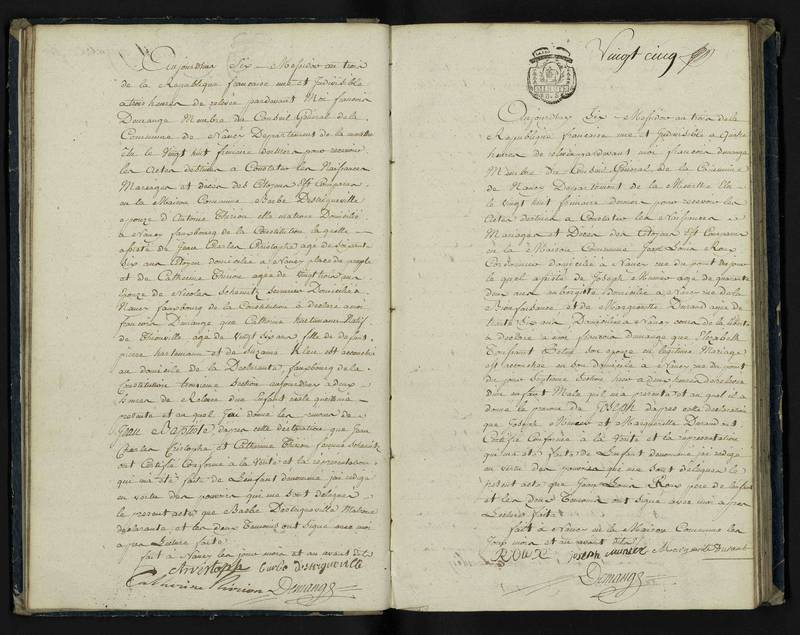 Aujourdhui Six Messidor an trois
de la Republique francaise une et Indivisible
a trois heures de relevée pardevant Moi francois
Demange Membre du Conseil Général de la
Commune de Nancy Departement de la meurthe
élu le Vingt huit frimaire dernier pour recevoir
les Actes destinés a Constater les Naissances
Mariages et Décès des Citoyens Est Comparue
en la Maison Commune Barbe
epouse d'Antoine Thirion elle matrone Domiciliée
à Nancy fauxbourg de la Constitution laquelle
assistée de Jean Charles Christophe agé de soixante
Six ans Citoyen domicilié à Nancy place du peuple
et de Catherine Thirion agée de Vingt trois ans
Epouse de Nicolas Domiciliée à
Nancy fauxbourg de la Constitution à déclaré a moi
francois Demange que Catherine hartemann Native
de Thionville agée de Vingt Six ans fille de defunt
pierre hartemann et de Suzanne est accouchée
au domicile de la Declarante fauxbourg de la
Constitution section aujourdhui a deux
heures de Relevée d'un Enfant male quelle me
presente et au quel Jai donné les prenoms de
Jean Baptiste dapres cette déclaration que Jean
Charles Christophe et Catherine Thirion femme
ont Certifié Conforme a la Vérité et la représentation
qui ma été faite de Lenfant denommé jai redigé
en vertu des pouvoirs qui me sont délégués
le present acte que Barbe Matrone
déclarante et les deux Temoins ont Signé avec moi
apres Lecture faite
fait à Nancy les jour mois et an avant dits
Catherine Thirion Demange
Vingt cinq
Aujourdhui Six Messidor an trois de la
Republique francaise une et Indivisible a quatre
heures de relevée pardevant moi francois Demange
Membre du Conseil Général de la Commune
de Nancy Departement de la Meurthe Elu
le Vingt huit frimaire dernier pour recevoir les
Actes destinés a Constater les Naissances
Mariages et Décès des Citoyens Est Comparu
en la Maison Commune Jean Louis Roux
Cordonnier domicilié a Nancy rue du pont
le quel assisté de Joseph Munier agé de quarante
deux ans aubergiste Domicilié a Nancy rue de la
Bienfaisance et de Marguerite Durand agée de
trente Six ans Domiciliée a Nancy cours de la liberté
a déclaré a moi francois demange que Elizabeth
son epouse en légitime Mariage
est accouchée en son domicile a Nancy rue du pont
section hier a deux heures de relevée
d'un enfant Male qu'il ma presenté et au quel il a
donné le prenom de JOSEPH dapres cette déclaration
que Joseph Munier et Marguerite Durand ont
Certifié Conforme à la Vérité et la représentation
qui ma été faite de Lenfant denommé jai redigé
en vertu des pouvoirs qui me sont délégués le
present acte que Jean Louis Roux père de lenfant
et les deux Temoins ont signé avec moi apres
Lecture faite
fait à Nancy en la Maison Commune les
Jour mois et an avant dits
ROUX joseph munier Marguerite Durand
Demange